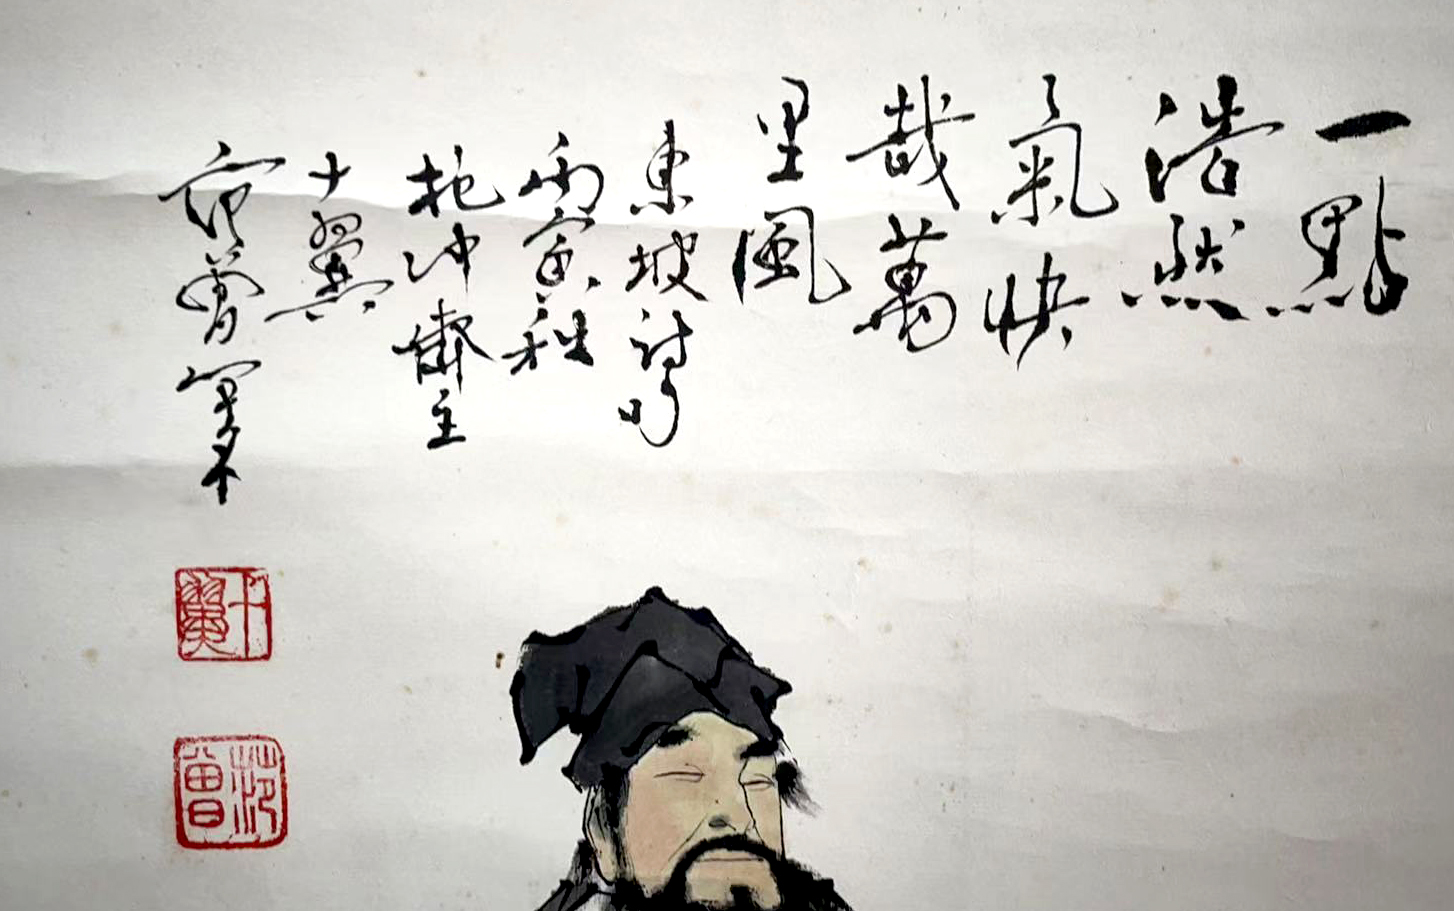 一點
浩然
氣快
哉萬
里風
東坡詩句
丙寅秋
抱沖齋主
十翼
范曾
十翼
范曾